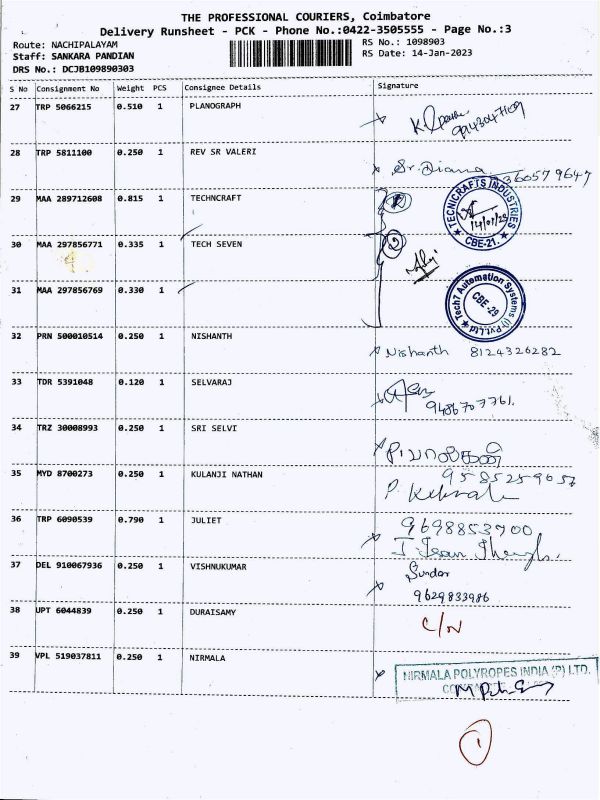 THE PROFESSIONAL COURIERS, Coimbatore
Delivery Runsheet - PCK - Phone No.:0422-3505555 - Page No.:3
Route: NACHIPALAYAM
RS No.: 1098903
Staff: SANKARA PANDIAN
RS Date: 14-Jan-2023
DRS No.: DCJB109890303
S No Consignment No Weight PCS Consignee Details Signature
27 TRP 5066215 0.510 1 PLANOGRAPH
28 TRP 5811100 0.250 1 REV SR VALERI
Sr. Diana
29 MAA 289712608 0.815 1 TECHNCRAFT
TECNICRAFTS INDUSTRIES
14/01/23
★ CBE-21. ★
30 MAA 297856771 0.335 1 TECH SEVEN
2
31 MAA 297856769 0.330 1
Tech7 Automation Systems (I) Pvt.Ltd ★
CBE-29
32 PRN 500010514 0.250 1 NISHANTH
Nishanth 8124326282
33 TDR 5391048 0.120 1 SELVARAJ
9486707761.
34 TRZ 30008993 0.250 1 SRI SELVI
35 MYD 8700273 0.250 1 KULANJI NATHAN
36 TRP 6090539 0.790 1 JULIET
9698853700
37 DEL 910067936 0.250 1 VISHNUKUMAR
Sundar
9629833986
38 UPT 6044839 0.250 1 DURAISAMY
C/N
39 VPL 519037811 0.250 1 NIRMALA
NIRMALA POLYROPES INDIA (P) LTD.
1